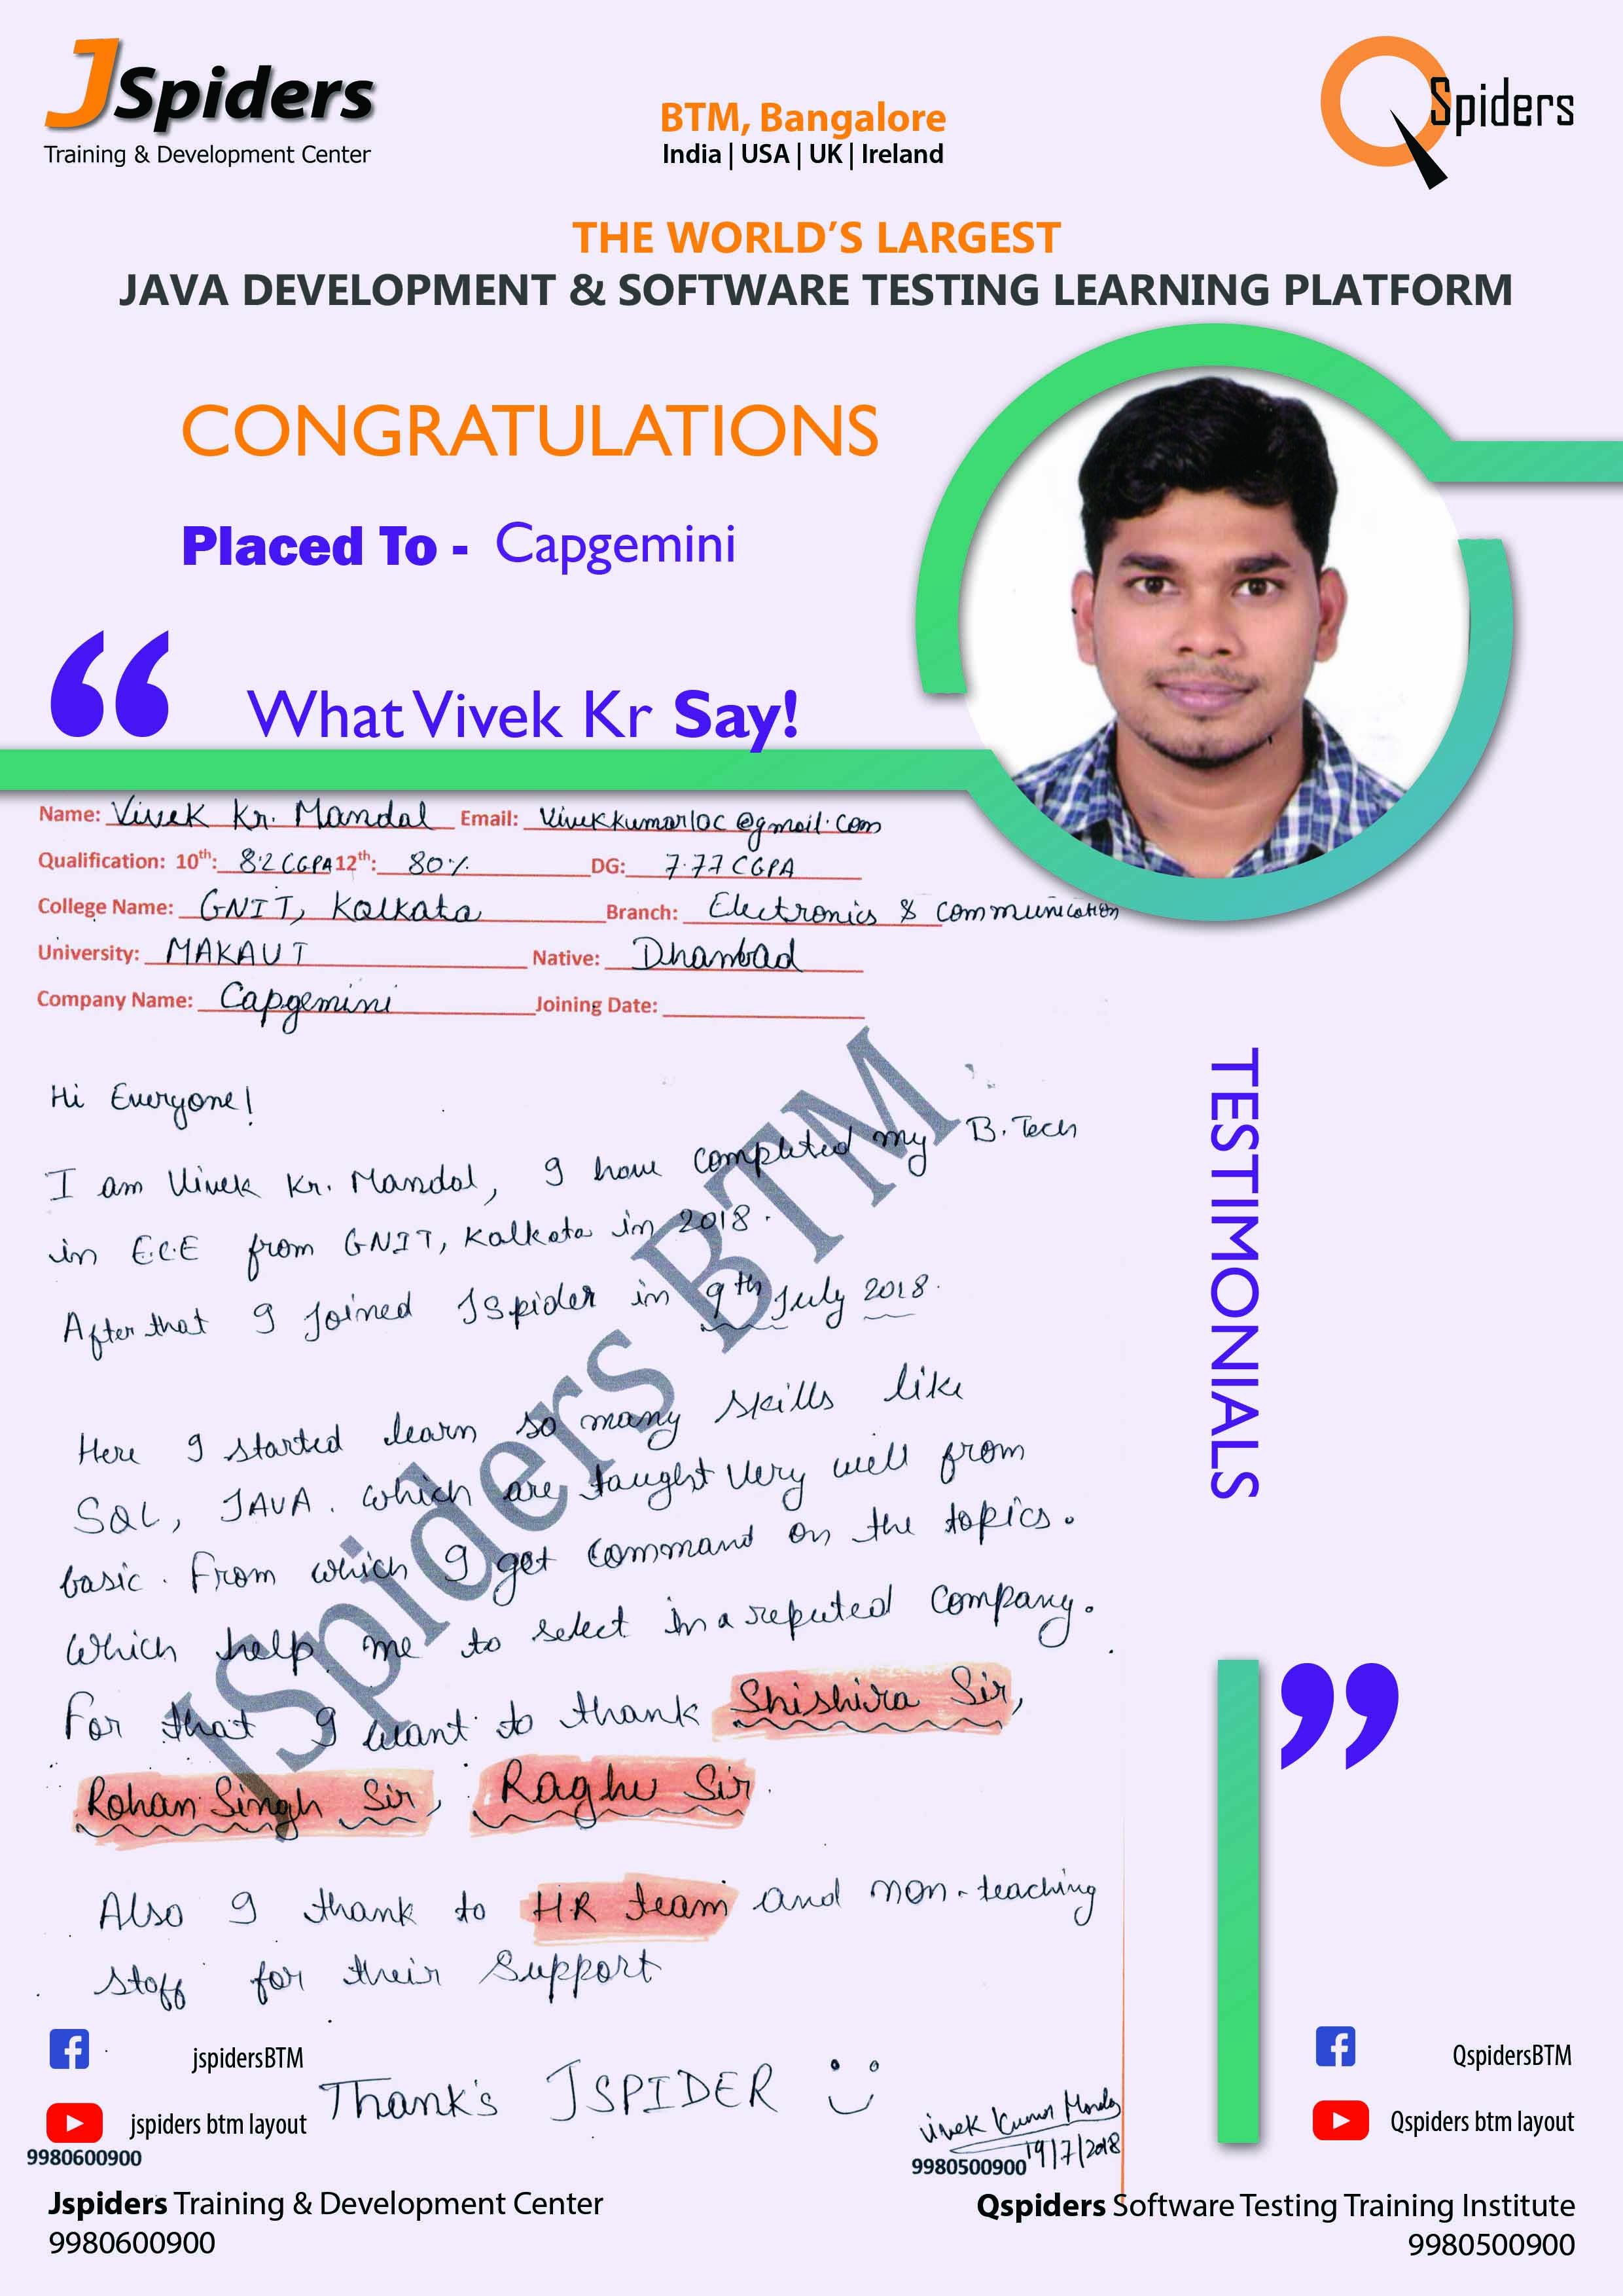 JSpiders
Training & Development Center
BTM, Bangalore
India | USA | UK | Ireland
QSpiders
THE WORLD'S LARGEST
JAVA DEVELOPMENT & SOFTWARE TESTING LEARNING PLATFORM
CONGRATULATIONS
Placed To - Capgemini
What Vivek Kr Say!
Name: Vivek Kr. Mandal Email: Vivekkumar10c@gmail.com
Qualification: 10th: 8.2 CGPA 12th: 80% DG: 7.77 CGPA
College Name: GNIT, Kolkata Branch: Electronics & Communication
University: MAKAUT Native: Dhanbad
Company Name: Capgemini Joining Date:
Hi Everyone!
I am Vivek Kr. Mandal, I have completed my B.Tech
in E.C.E from GNIT, Kolkata in 2018.
After that I joined JSpider in 9th July 2018.
Here I started learn so many skills like
SQL, JAVA. which are taught very well from
basic. From which I get command on the topics.
Which help me to select in a reputed company.
For that I want to thank Shishira Sir,
Rohan Singh Sir, Raghu Sir.
Also I thank to HR team and non-teaching
staff for their support
Thank's JSPIDER
Vivek Kumar Mandal
19/7/2018
JSpiders BTM
TESTIMONIALS
jspidersBTM
jspiders btm layout
9980600900
9980500900
QspidersBTM
Qspiders btm layout
Jspiders Training & Development Center
9980600900
Qspiders Software Testing Training Institute
9980500900